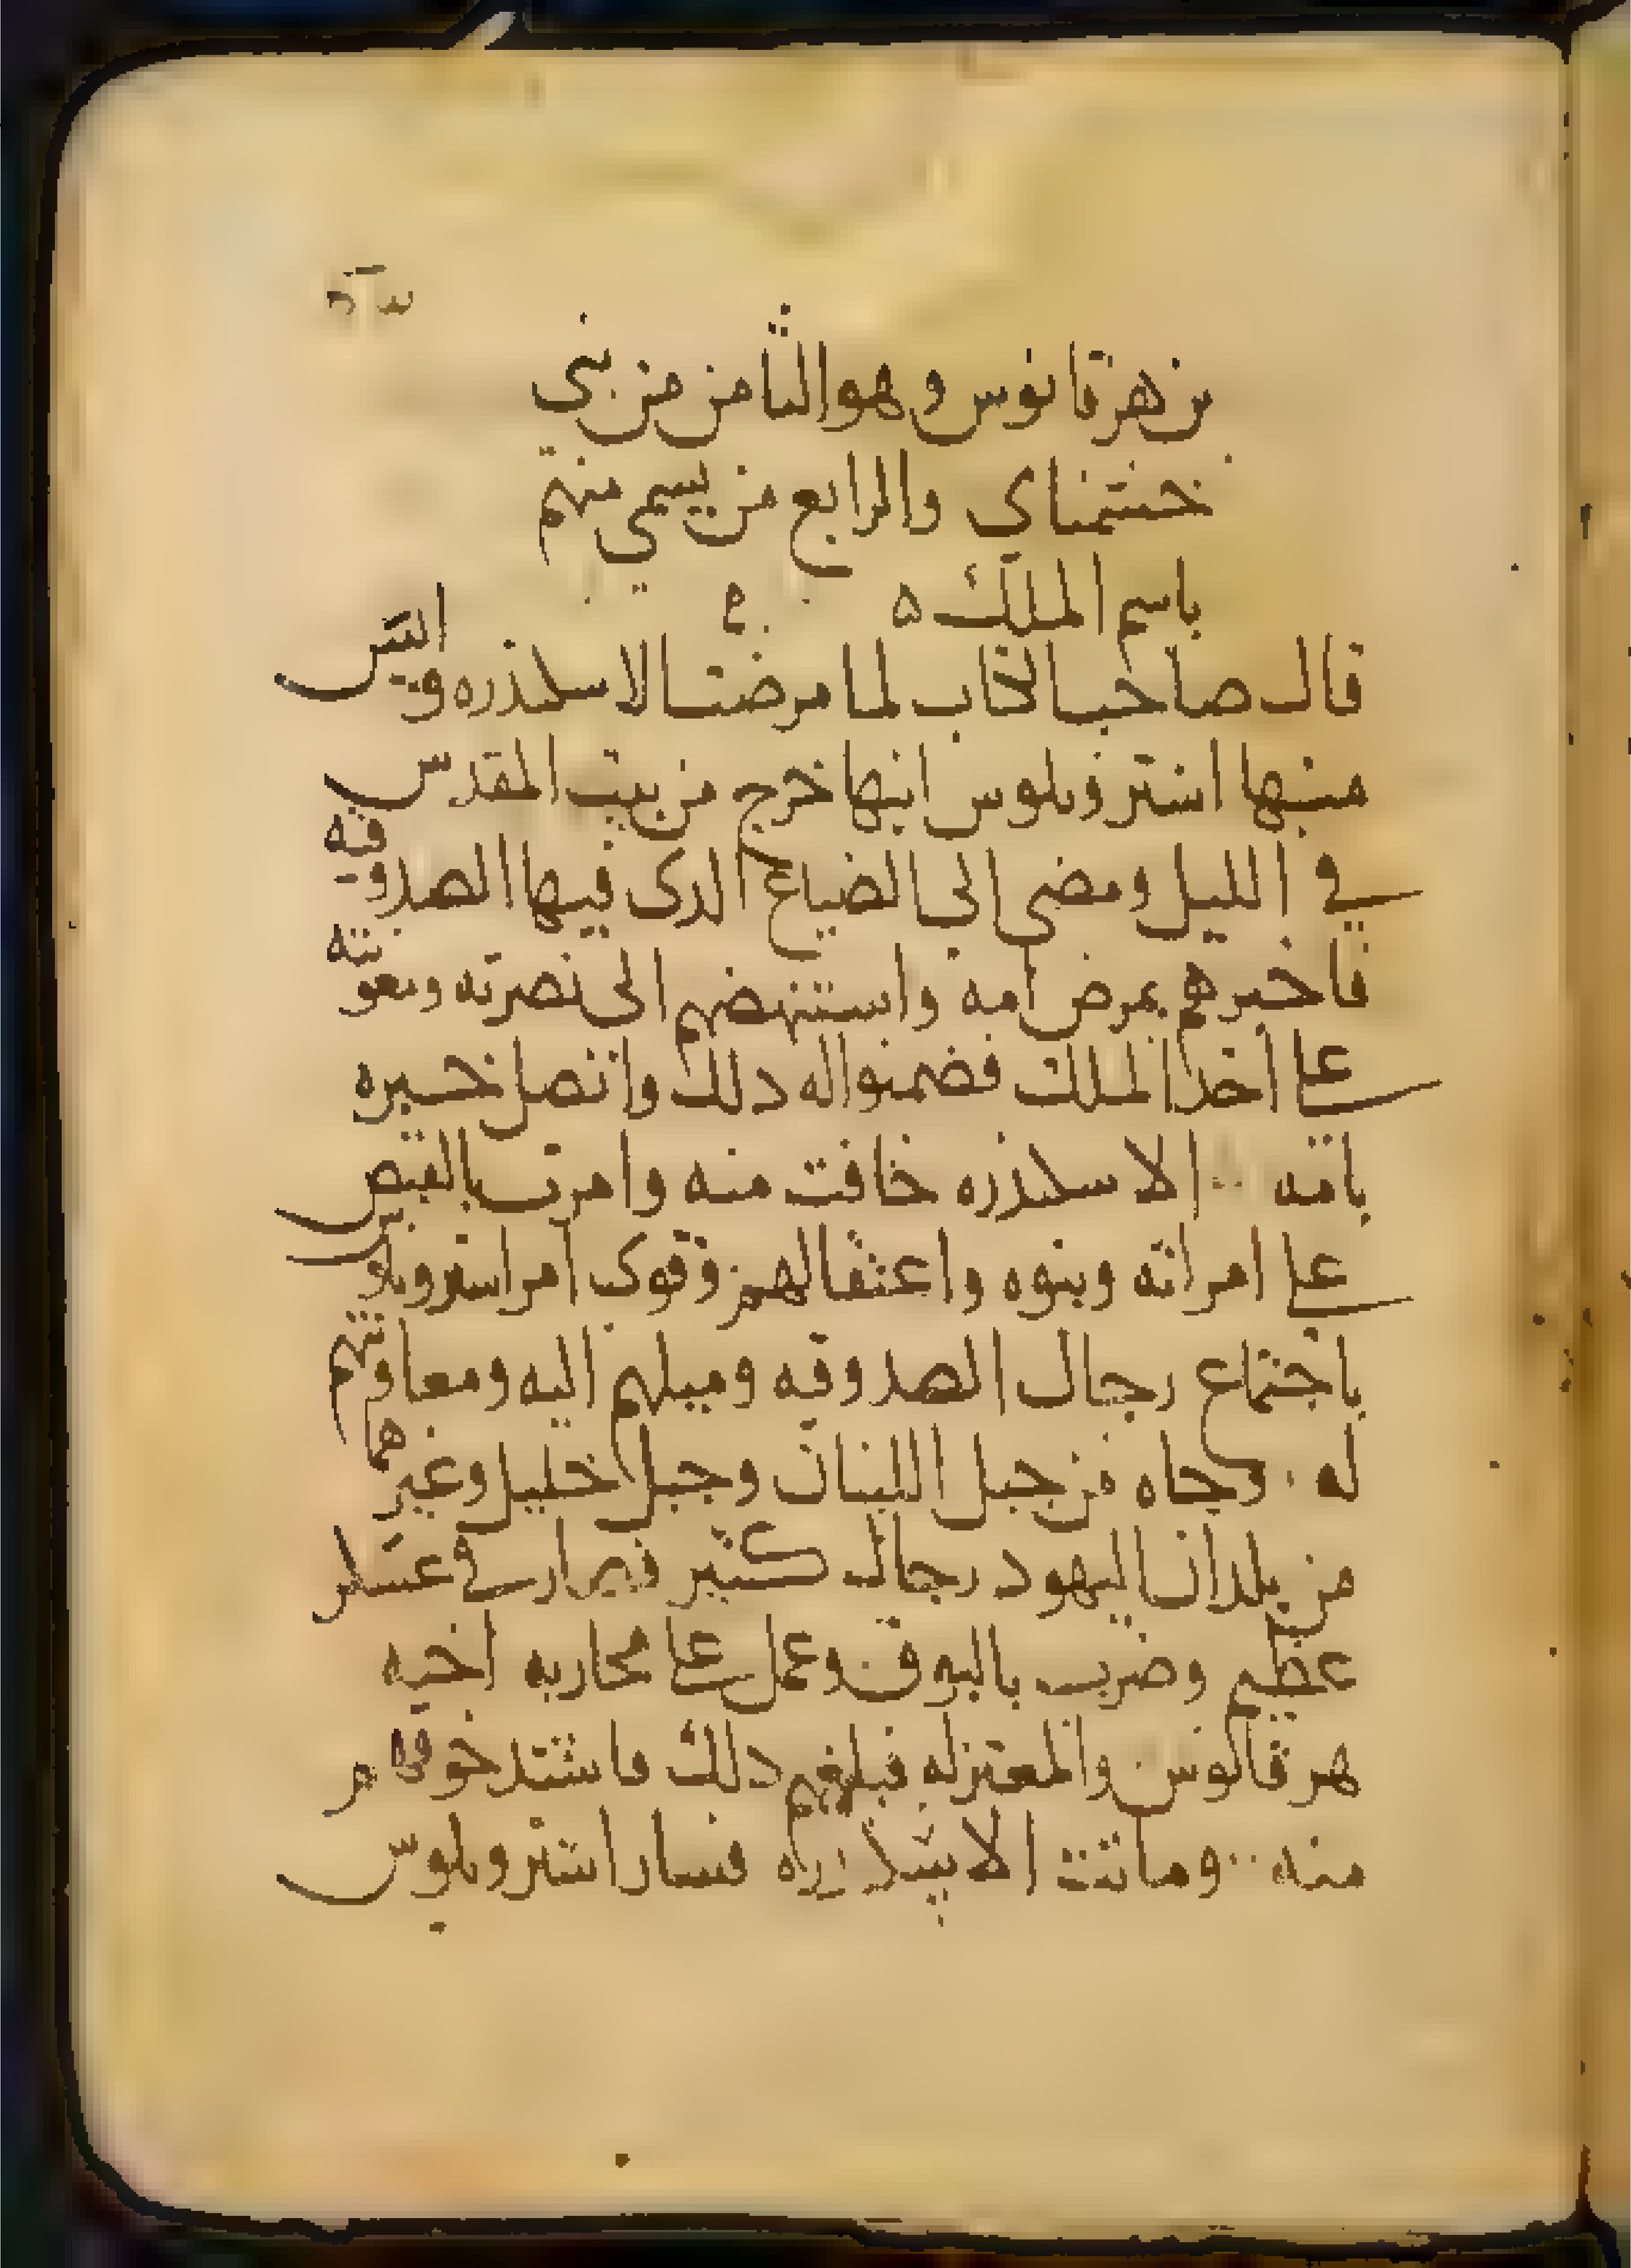 بن هرقانوس وهو الثامن من بني
خشمناي والرابع من يسمى منهم
باسم الملك
قال صاحب الكتاب لما مرضت الاسكندره وايس
منها استروبلوس ابنها خرج من بيت المقدس
في الليل ومضى الى الضياع الدى فيها الصدوقيه
فاخبرهم بمرض امه واستنهضهم الى نصرته ومعونته
على اخد الملك فضمنوا له دلك واتصل خبره
بامه الاسكندره خافت منه وامرت بالقبض
على امراته وبنوه واعتقالهم وقوى امر استروبلوس
باجتماع رجال الصدوقيه وميلهم اليه ومعاونتهم
له وجاه من جبل اللبنان وجبل خليل وغيرها
من بلدان اليهود رجال كثير فصار في عسكر
عظيم وضرب بالبوق وعمل على محاربه اخيه
هرقانوس والمعتزله فبلغهم دلك فاشتد خوفهم
منه وماتت الاسكندره فسار استروبلوس